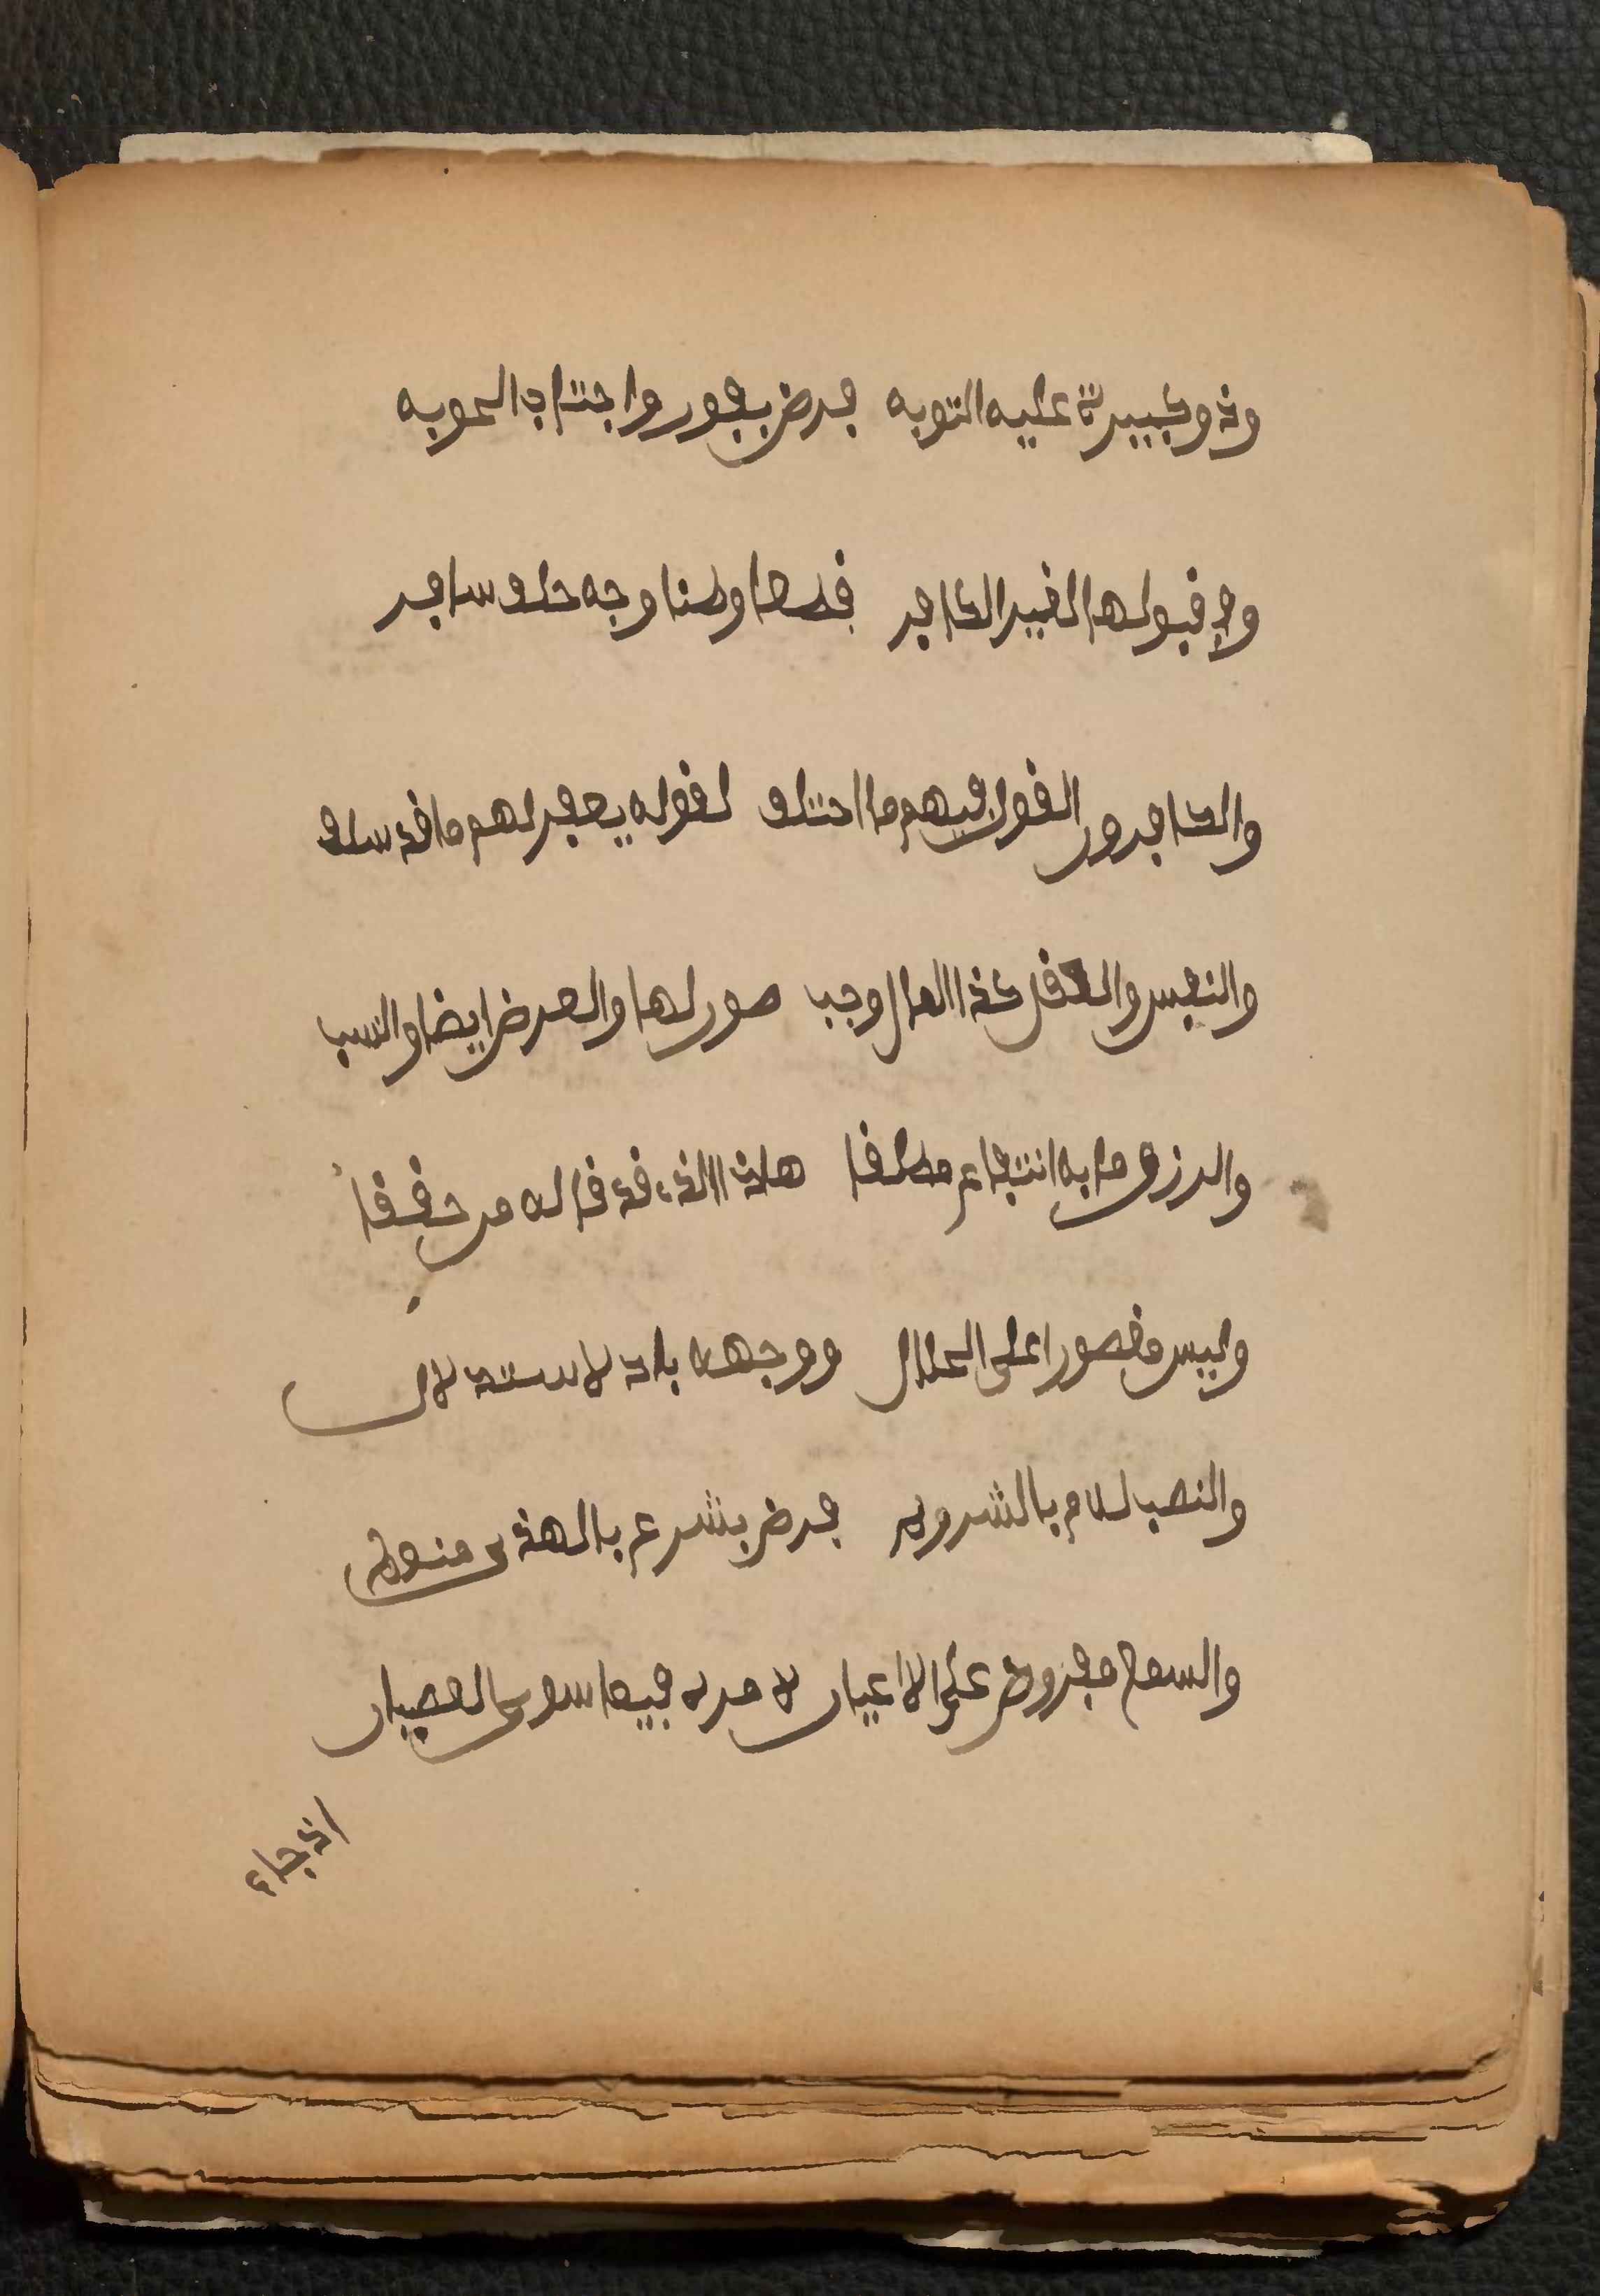 وذو كبيرة عليه التوبه فرض بفور واجتناب الحوبه
وفي قبولها لغير الكافر قطعا وظنا وجه خلف سافر
والكافرون القول فيهم ما اختلف لقوله يغفر لهم ما قد سلف
والنفس والعقل كذا المال وجب صون لها والعرض ايضا والنسب
والرزق ما به انتفاع مطلقا هاذا الذي قد قاله من حققا
وليس مقصورا على الحلال ووجهه باد لاستدلال
والنصب للامام بالشروط فرض بشرع بالهدى منوط
والسمع مفروض على الاعيان لامره فيما سوى العصيان
اذ جاء